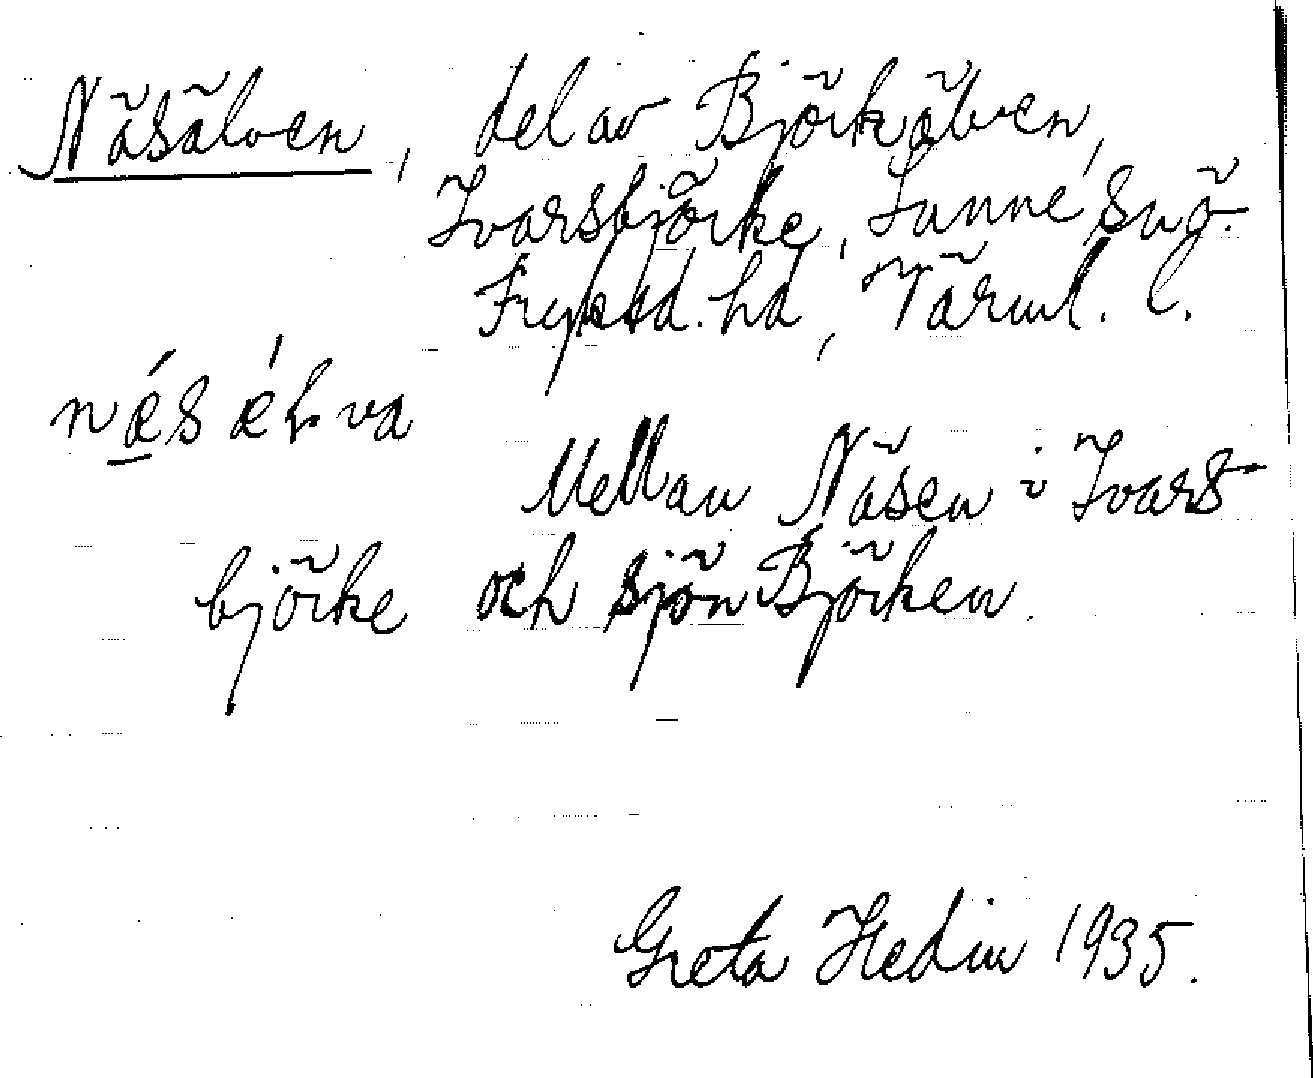 Näsälven, del av Björkälven,
Ivarsbjörke, Sunne sn,
Fryksd. hd, Värml. l.
nǽs ǽl va
Mellan Näsen i Ivars
björke och sjön Björken.
Greta Hedin 1935.